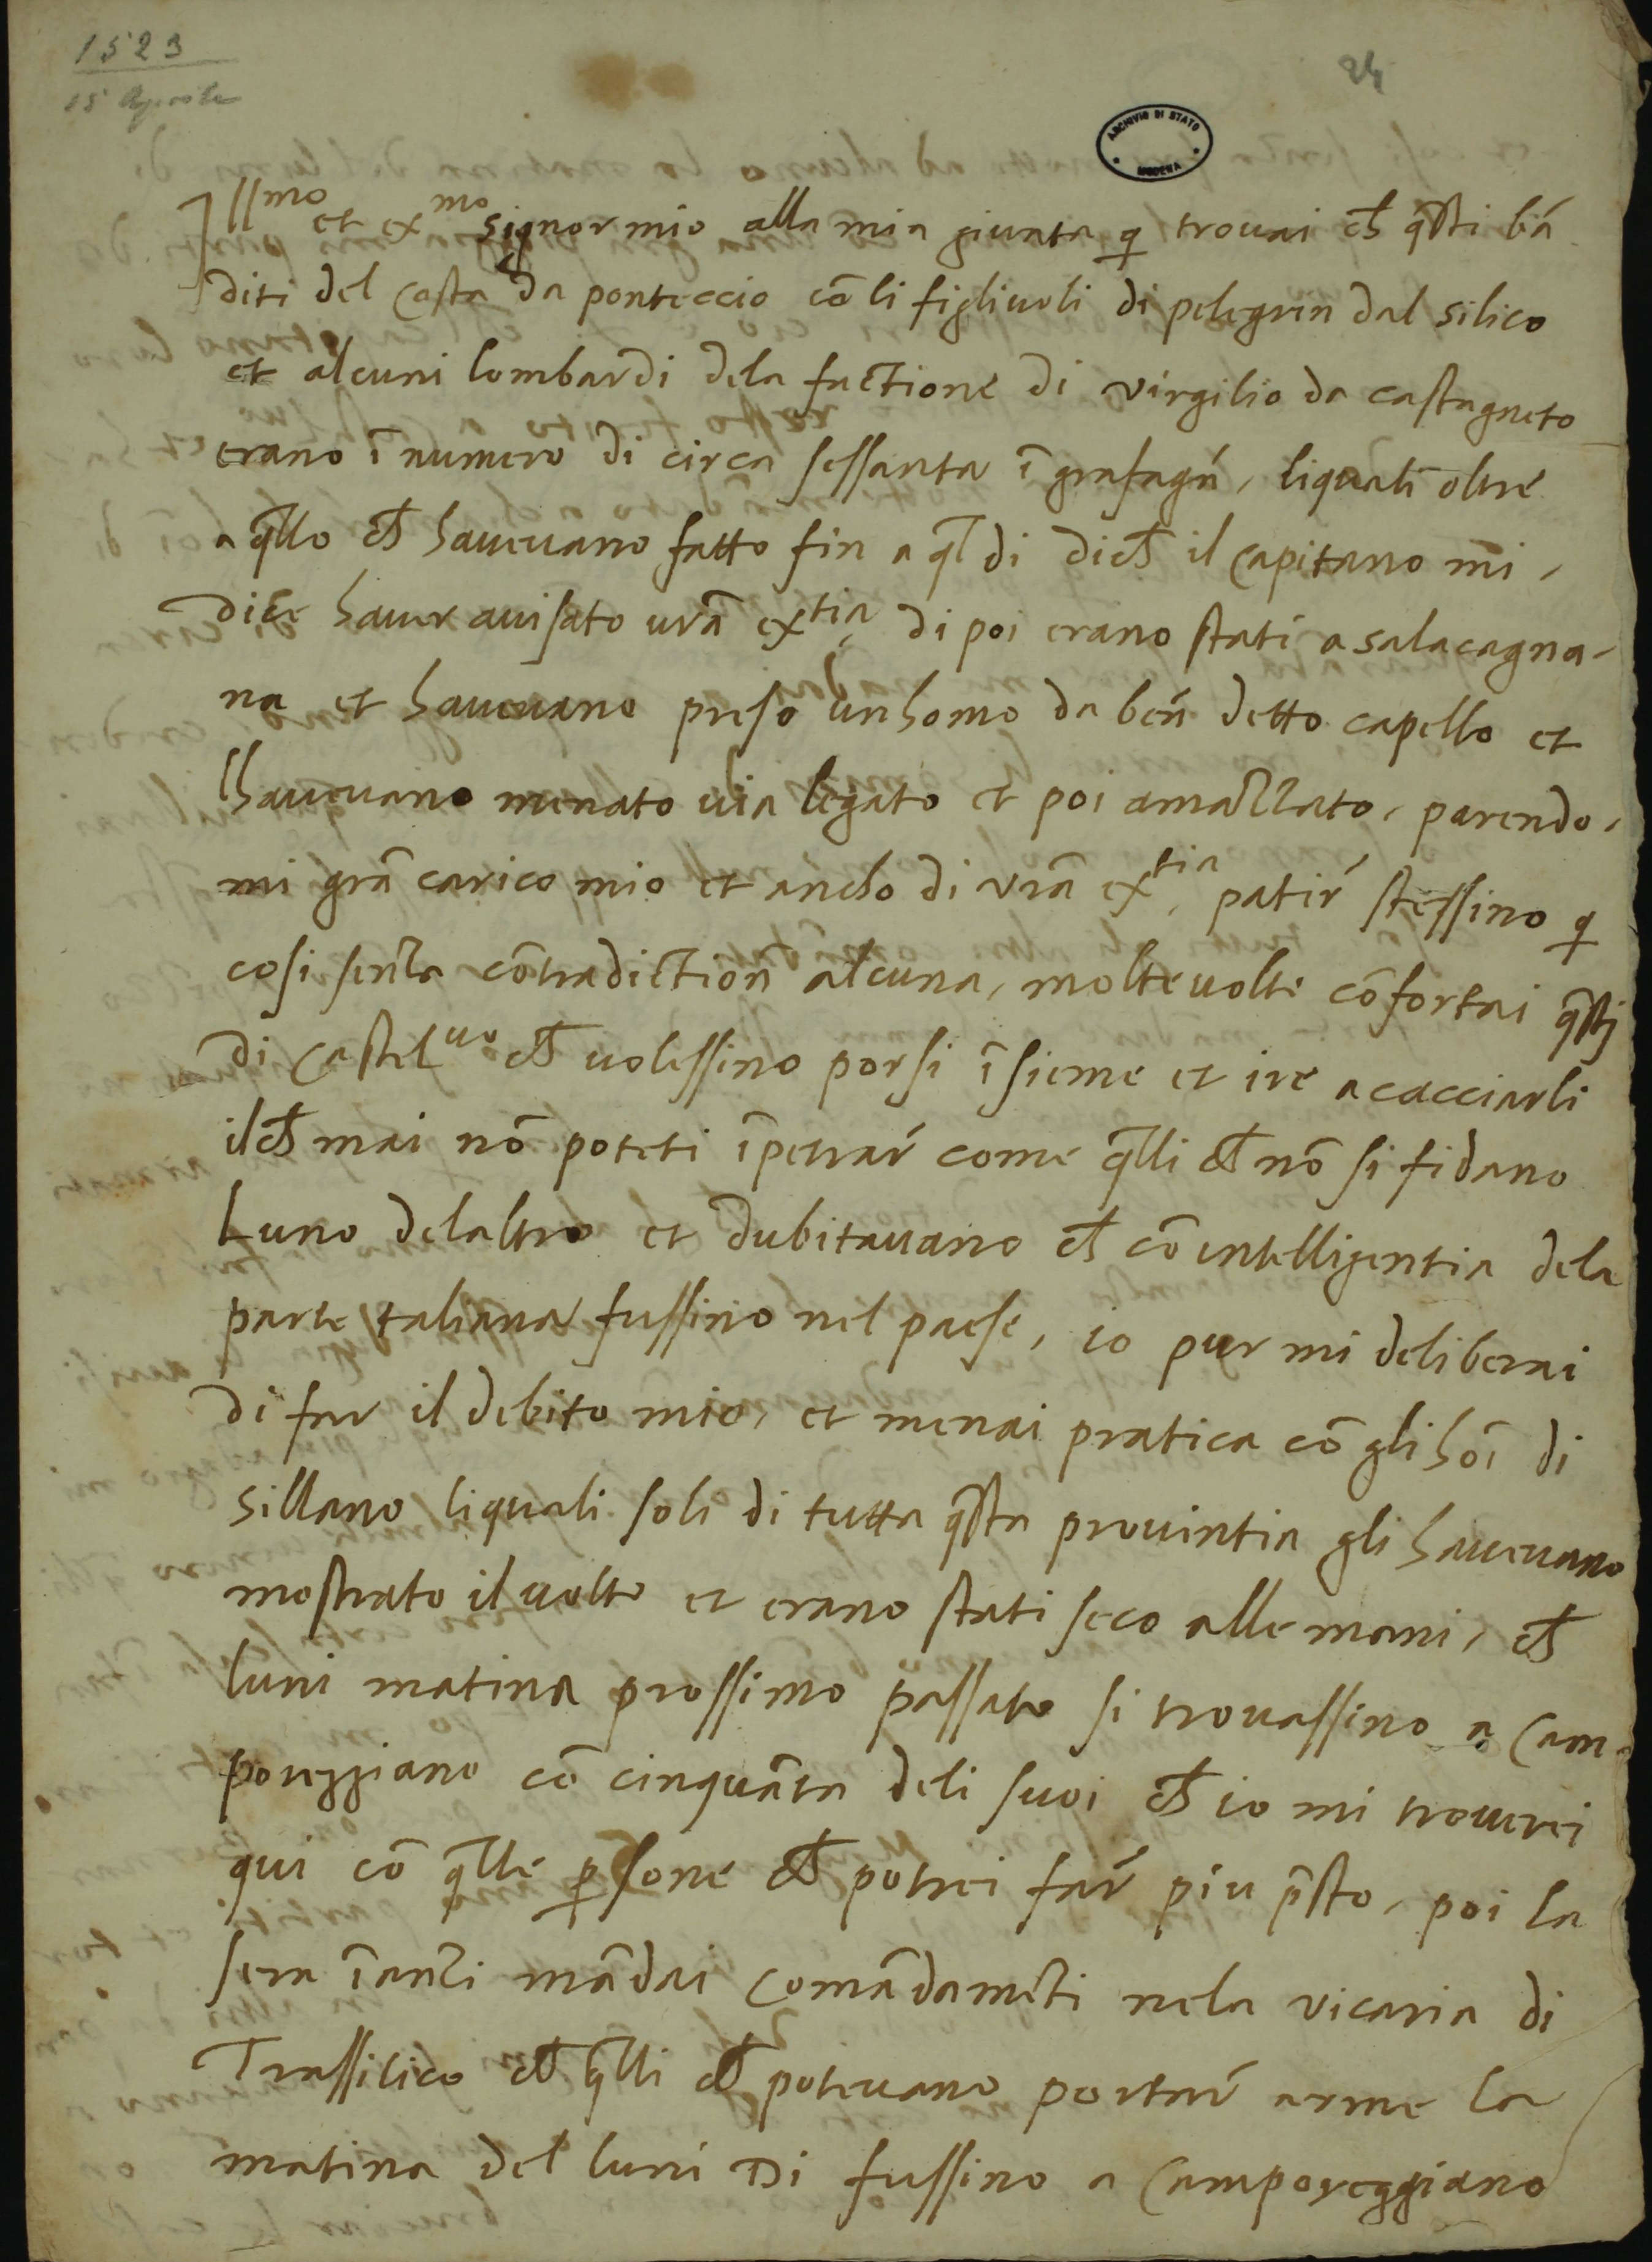 1523
15 Aprile
24
ARCHIVIO DI STATO
MODENA
Ill^mo et ex^mo signor mio alla mia giunta q trouai ch̃ q̃sti bã
diti del Costa da ponteccio cõ li figliuoli di pelegrin dal silico
et alcuni lombardi dela factione di virgilio da castagneto
erano ĩ numero di circa sessanta ĩ grafagñ, liquali oltre
a q̃llo ch̃ haueuano fatto fin a q̃l di dich̃ il capitano mi,
dice hauer auisato vrã ex^tia, di poi erano stati a salacagna-
na et haueuano preso un homo da beñ detto capello et
lhaueuano menato uia legato et poi amazzato, parendo,
mi grã carico mio et ancho di vrã ex^tia, patir̃ stessino q
cosi senza cõtradiction alcuna, molte uolte cõfortai q̃stj
di Castel^uo ch̃ uolessino porsi ĩsieme et ire a cacciarli
ilch̃ mai nõ poteti ĩpetrar̃ come q̃lli ch̃ nõ si fidano
luno delaltro et dubitauano ch̃ cõ intelligentia dela
parte taliana fussino nel paese, io pur mi deliberai
di far il debito mio, et menai pratica cõ gli hoĩ di
sillano liquali soli di tutta q̃sta prouintia gli haueuano
mostrato il uolto et erano stati seco alle mani, ch̃
luni matina prossimo passato si trouassino a Cam-
poreggiano cõ cinquãta deli suoi ch̃ io mi trouerei
qui cõ q̃lle p̱sone ch̃ potrei far̃ piu p̃sto, poi la
sera ĩanzi mãdai comãdamẽti nela vicaria di
Trassilico ch̃ q̃lli ch̃ poteuano portar̃ arme la
matina del luni Di fussino a Camporeggiano